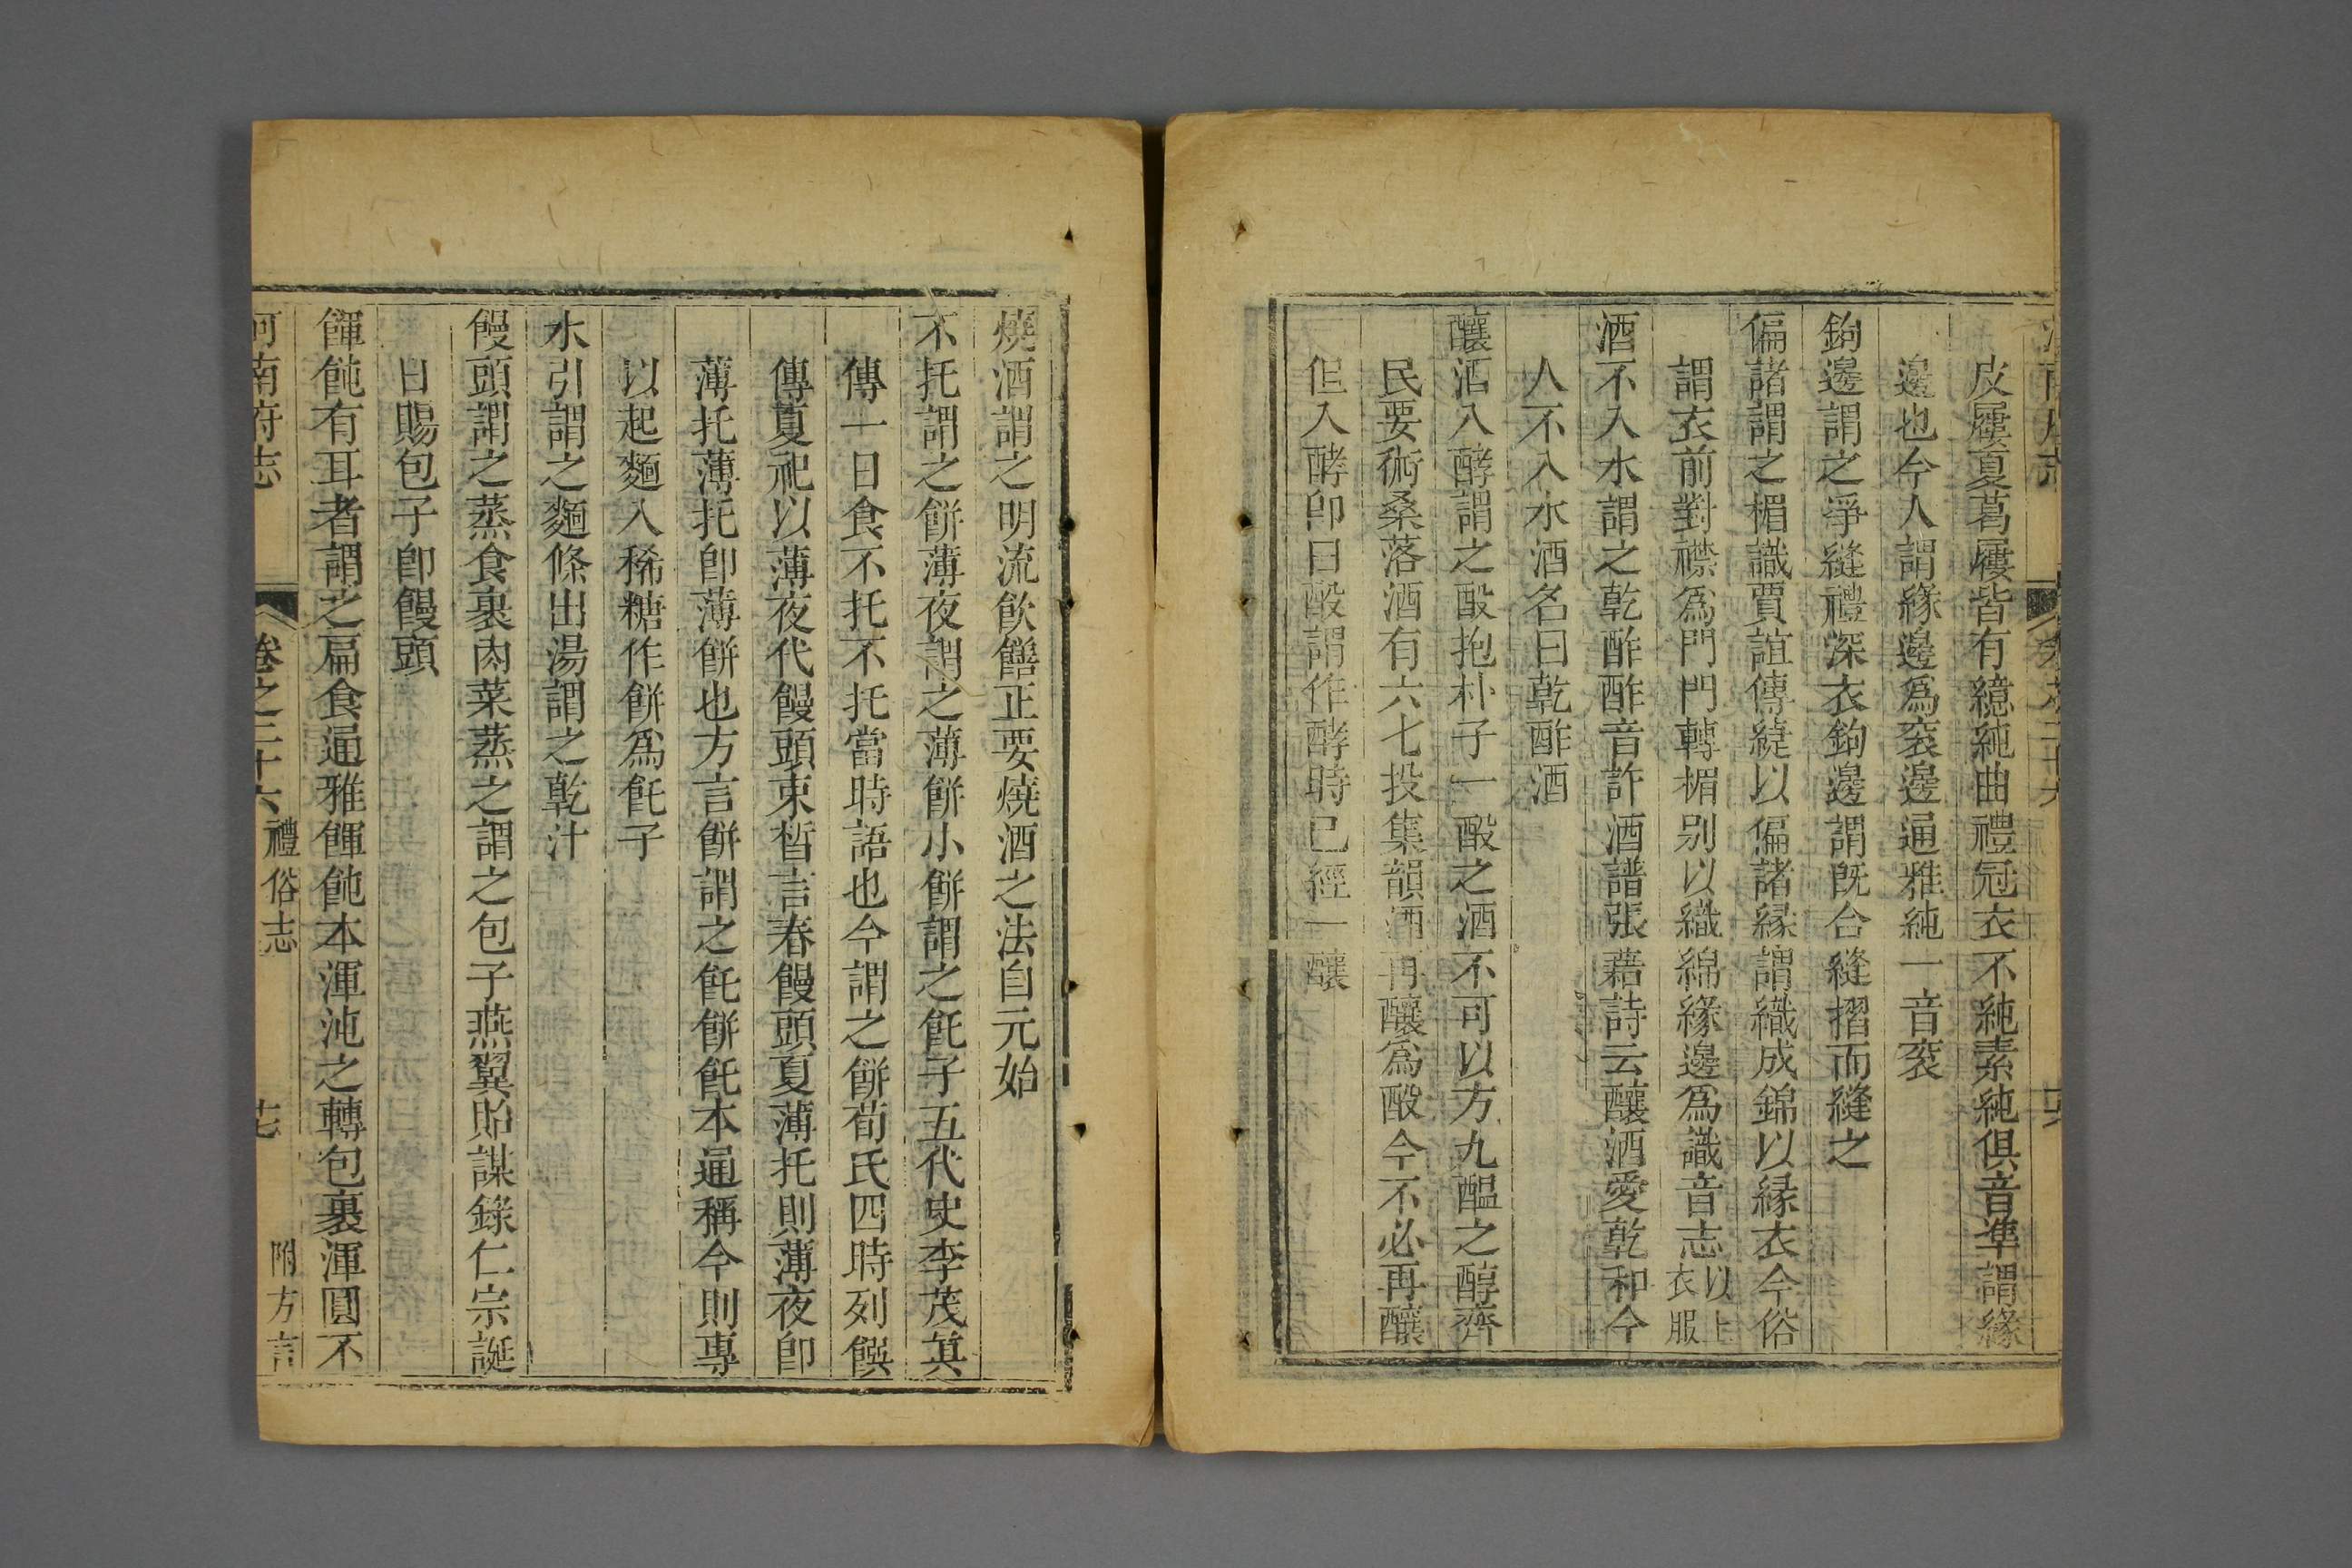 皮屨夏葛屨皆有繶純曲禮冠衣不純素純俱音準謂緣
邊也今人謂緣邊爲衮邊通雅純一音衮
鉤邊謂之爭縫禮深衣鉤邊謂旣合縫摺而縫之
偏諸謂之楣識賈誼傳緁以偏諸緣謂織成錦以緣衣今俗
謂衣前對襟爲門門轉楣别以織綿緣邊爲識音志以上衣服
酒不入水謂之乾酢酢音許酒譜張藉詩云釀酒愛乾和今
人不入水酒名曰乾酢酒
釀酒入酵謂之酘抱朴子一酘之酒不可以方九醞之醇齊
民要術桑落酒有六七投集韻酒再釀爲酘今不必再釀
但入酵卽曰酘謂作酵時已經一釀
燒酒謂之明流飲饍正要燒酒之法自元始
不托謂之餅薄夜謂之薄餅小餅謂之飥子五代史李茂眞
傳一日食不托不托當時語也今謂之餅荀氏四時列饌
傳夏祀以薄夜代饅頭束晳言春饅頭夏薄托則薄夜卽
薄托薄托卽薄餅也方言餅謂之飥餅飥本通稱今則專
以起麵入稀糖作餅爲飥子
水引謂之麵條出湯謂之乾汁
饅頭謂之蒸食裹肉菜蒸之謂之包子燕翼貽謀錄仁宗誕
日賜包子卽饅頭
餫飩有耳者謂之扁食通雅餫飩本渾沌之轉包裹渾圓不
河南府志
卷之三十六 禮俗志
附方言